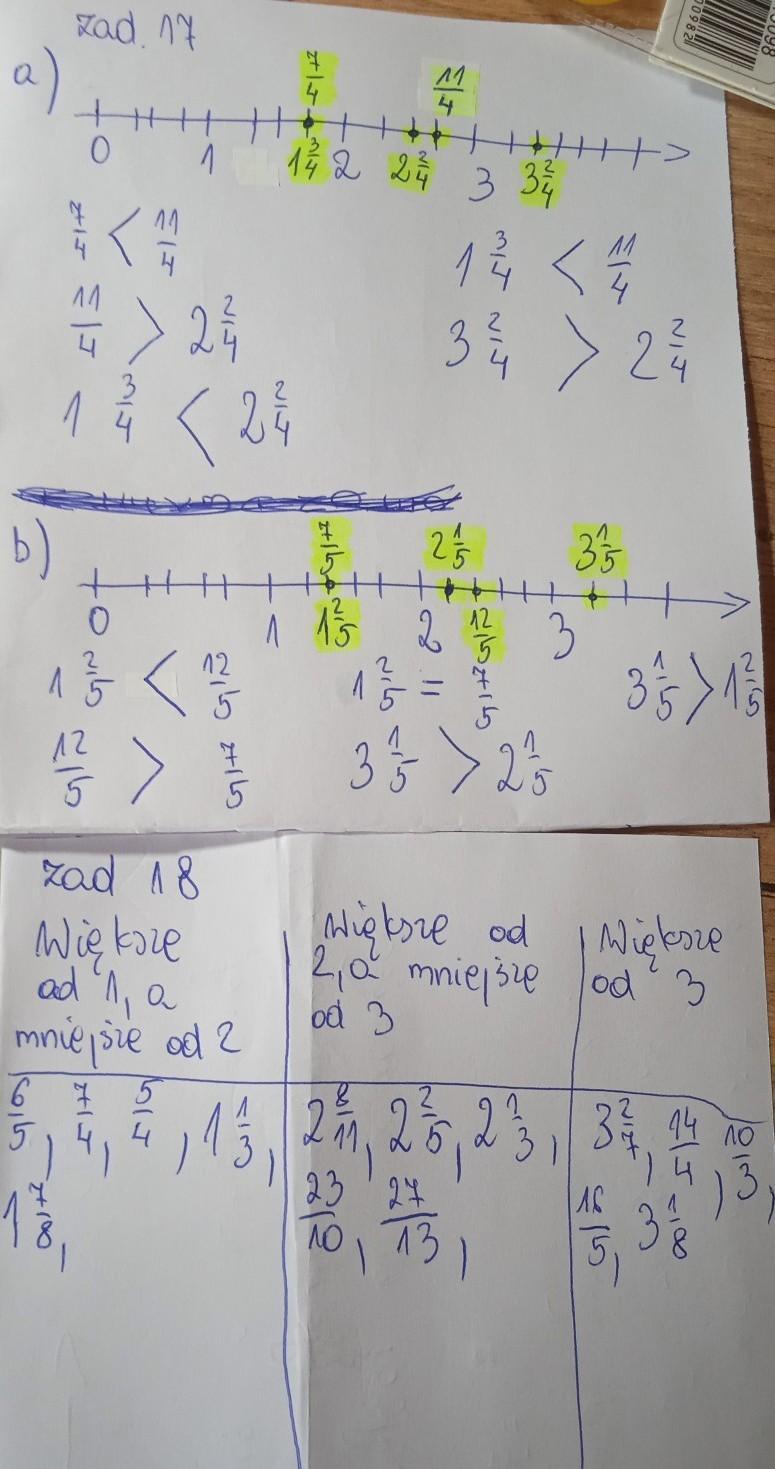 zad. 17
a)
7/4 11/4
0 1 1 3/4 2 2 2/4 3 3 2/4
7/4 < 11/4 1 3/4 < 11/4
11/4 > 2 2/4 3 2/4 > 2 2/4
1 3/4 < 2 2/4
b)
7/5 2 1/5 3 1/5
0 1 1 2/5 2 12/5 3
1 2/5 < 12/5 1 2/5 = 7/5 3 1/5 > 1 2/5
12/5 > 7/5 3 1/5 > 2 1/5
zad 18
Większe
od 1, a
mniejsze od 2
Większe od
2, a mniejsze
od 3
Większe
od 3
6/5, 7/4, 5/4, 1 1/3,
1 7/8,
2 8/11, 2 2/5, 2 1/3,
23/10, 27/13,
3 2/7, 14/4, 10/3,
16/5, 3 1/8